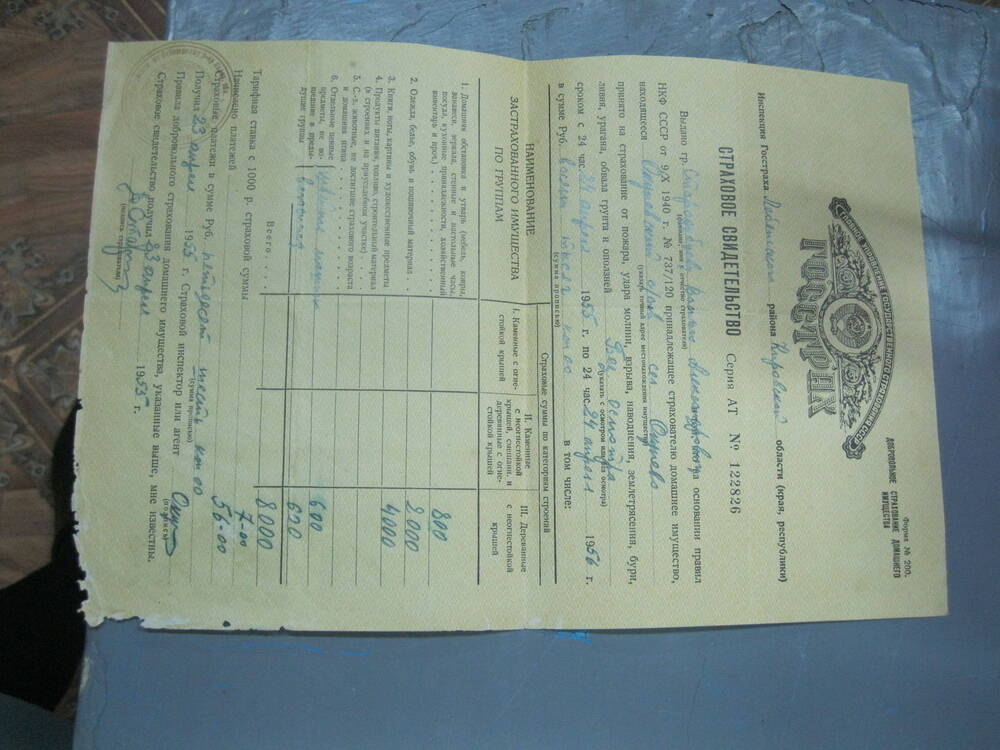 Форма № 200.
ДОБРОВОЛЬНОЕ СТРАХОВАНИЕ ДОМАШНЕГО ИМУЩЕСТВА
ГЛАВНОЕ УПРАВЛЕНИЕ ГОСУДАРСТВЕННОГО СТРАХОВАНИЯ СССР
ГОССТРАХ
Инспекция Госстраха района Кировской области (края, республики)
СТРАХОВОЕ СВИДЕТЕЛЬСТВО Серия АТ № 122826
Выдано гр. на основании правил
(фамилия, имя и отчество страхователя)
НКФ СССР от 9/X 1940 г. № 737/120 принадлежащее страхователю домашнее имущество,
находящееся
(указать точный адрес местонахождения имущества)
принято на страхование от пожара, удара молнии, взрыва, наводнения, землетрясения, бури,
ливня, урагана, обвала грунта и оползней Без осмотра
(указать с осмотром или без осмотра)
сроком с 24 час. 24 апреля 1955 г. по 24 час. 24 апреля 1956 г.
в сумме Руб. восемь тысяч коп 00 в том числе:
(сумма прописью)
НАИМЕНОВАНИЕ ЗАСТРАХОВАННОГО ИМУЩЕСТВА ПО ГРУППАМ
Страховые суммы по категориям строений
I. Каменные с огнестойкой крышей
II. Каменные с неогнестойкой крышей, смешан. и деревянные с огнестойкой крышей
III. Деревянные с неогнестойкой крышей
1. Домашняя обстановка и утварь (мебель, ковры, занавеси, зеркала, стенные и настольные часы, посуда, кухонные принадлежности, хозяйственный инвентарь и проч.) 800
2. Одежда, белье, обувь и пошивочный материал 2000
3. Книги, ноты, картины и художественные предметы
4. Продукты питания, топливо, строительный материал (в строениях и на приусадебном участке) 4000
5. С.-х. животные, не достигшие страхового возраста и домашняя птица
6. Отдельные ценные предметы, не вошедшие в предыдущие группы швейная машина 600
велосипед 600
Всего 8000
Тарифная ставка с 1000 р. страховой суммы 7-00
Начислено платежей 56-00
Страховые платежи в сумме Руб. пятьдесят шесть коп 00
(сумма прописью)
Получил 23 апреля 1955 г. Страховой инспектор или агент
(подпись)
Правила добровольного страхования домашнего имущества, указанные выше, мне известны.
Страховое свидетельство получил 23 апреля 1955 г.
(подпись страхователя)